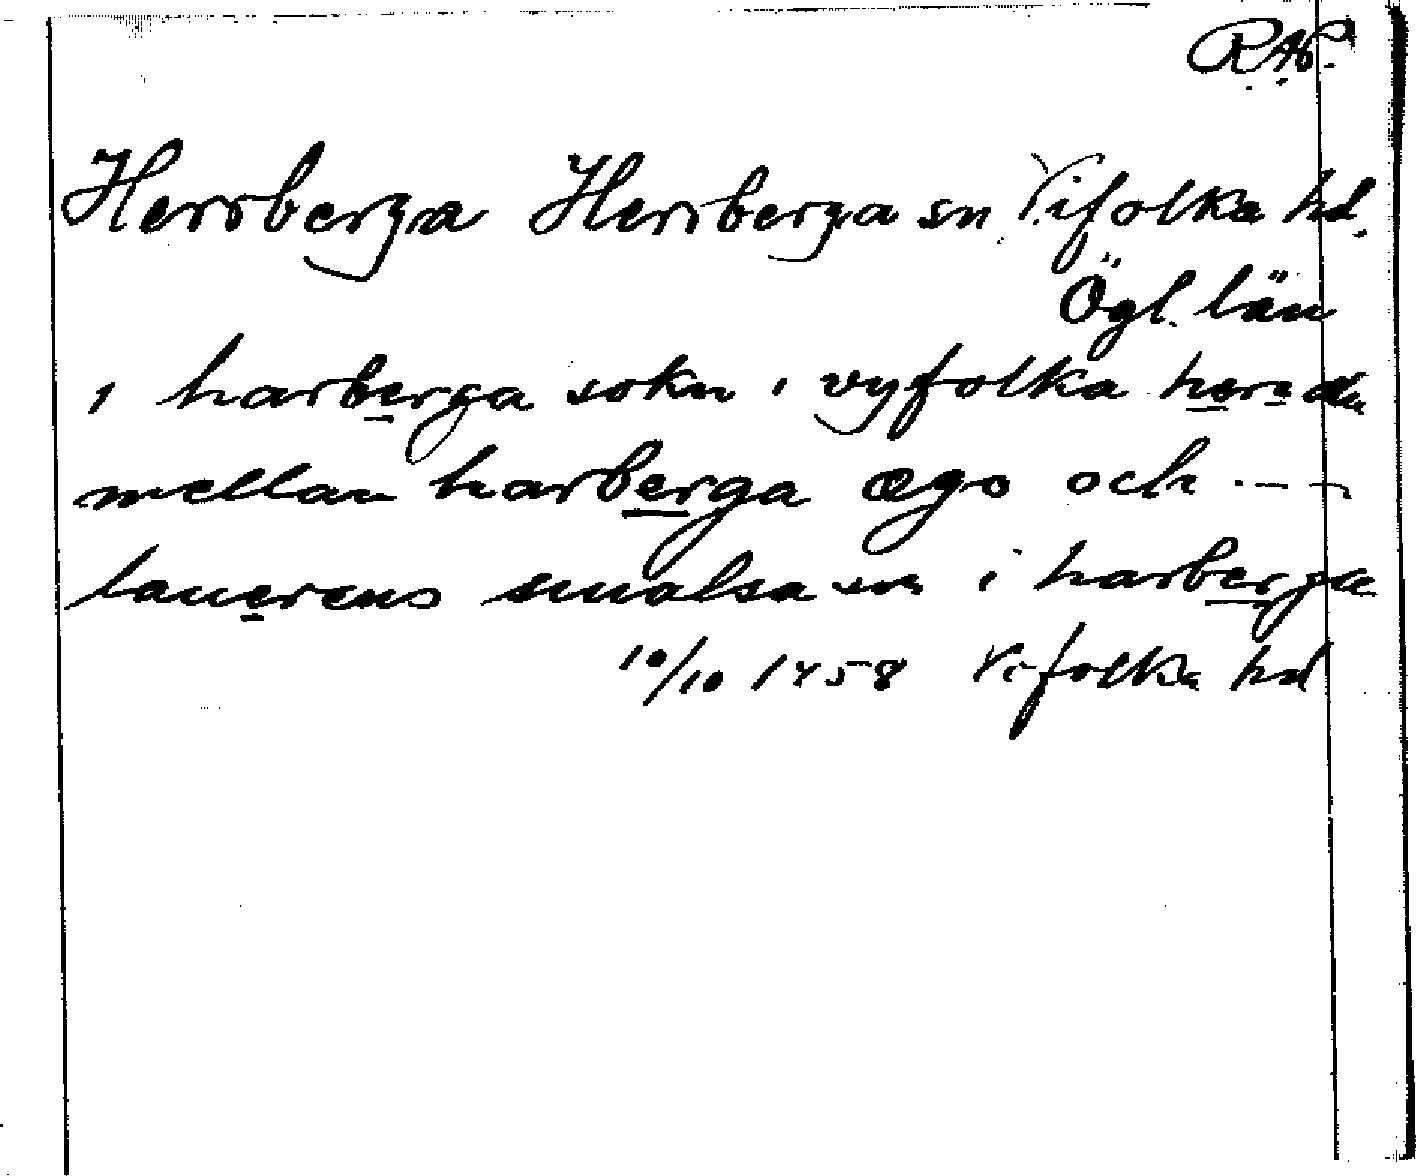 RAP.
Herrberga Herrberga sn Vifolka hd.
Ögl. län
i harberga sokn i vyfolka heredhe
mellan harberga ægo och ----
lauerens smalsa son i harberga
10/10 1458 Vifolka hd